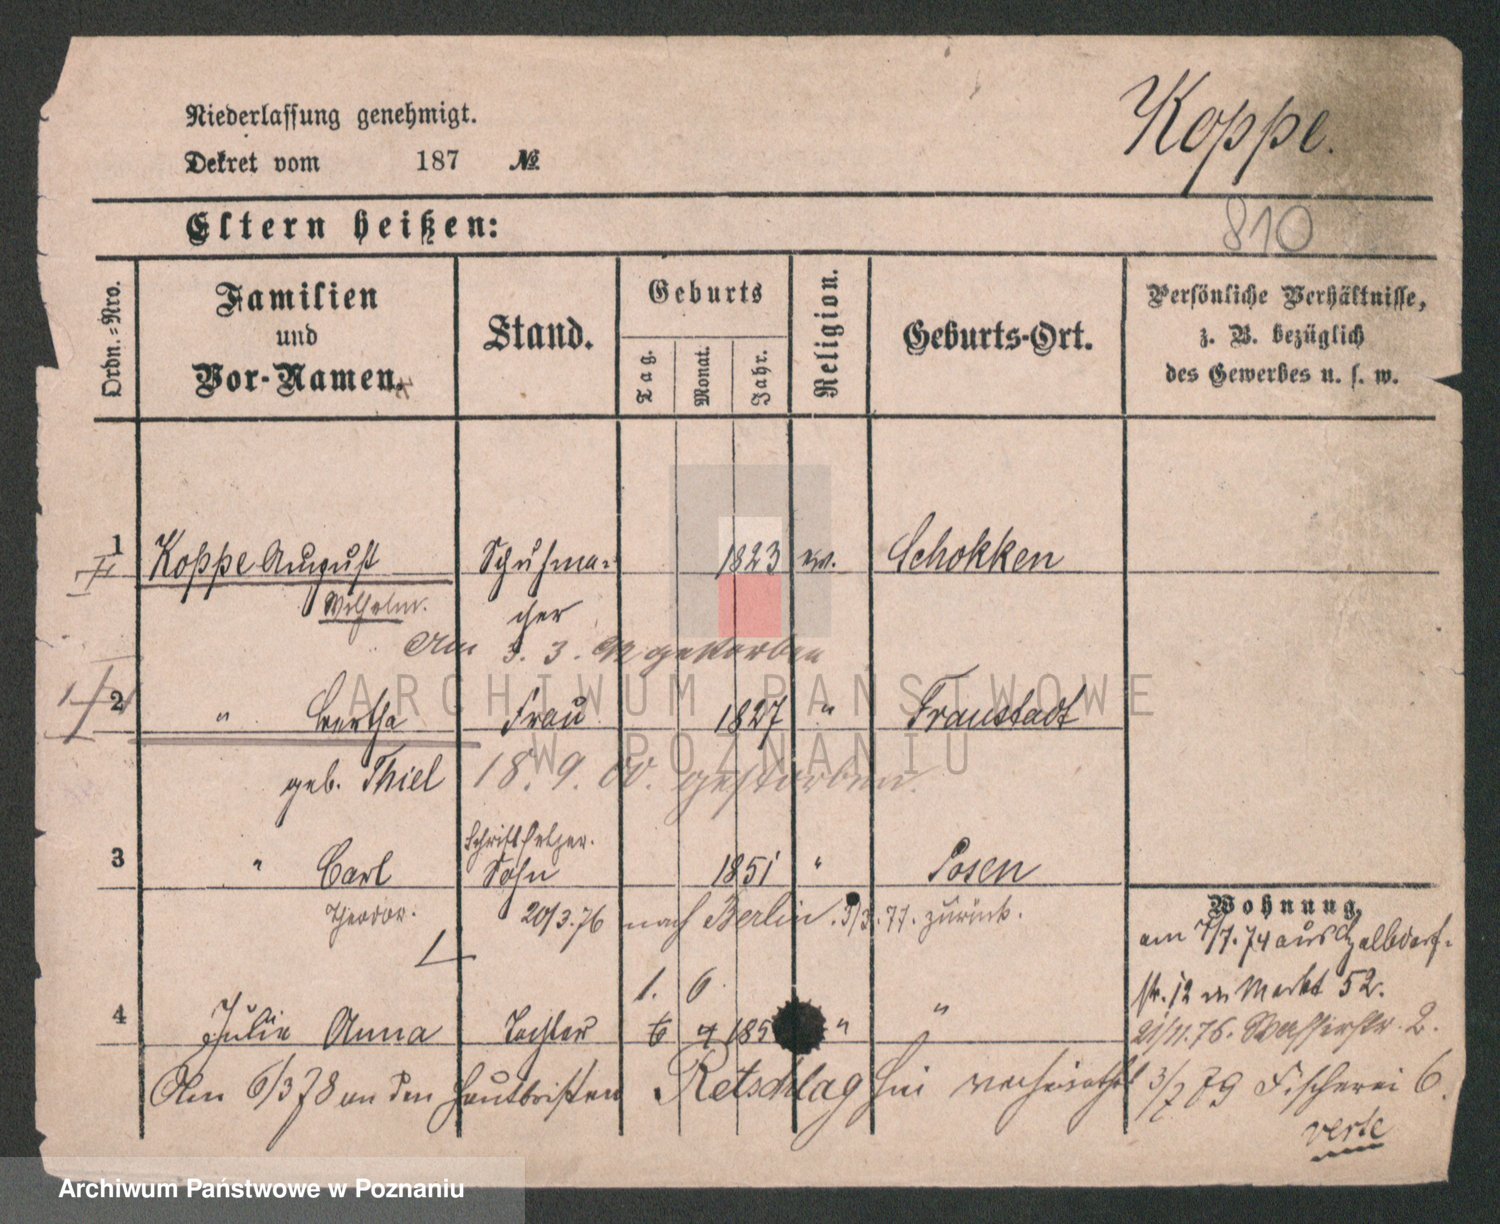 Niederlassung genehmigt.
Koppe.
Dekret vom 187 №
Eltern heißen:
810
Ordn.=Nro.
Familien
und
Vor-Namen.
Stand.
Geburts
Tag.
Monat.
Jahr.
Religion.
Geburts-Ort.
Persönliche Verhältnisse,
z. B. bezüglich
des Gewerbes u. s. w.
1 Koppe August Schuhma= 1823 ev. Schokken
Wilhelm. cher
Am 3. 3. gestorben
2 " Bertha Frau 1827 " Fraustadt
geb. Thiel 18. 9. 00. gestorben.
Schriftsetzer.
3 " Carl Sohn 1851 " Posen
Theodor. 20/3.76 nach Berlin. 3/3.77. zurück.
Wohnung
am 7/7.74 aus Halbdorf=
str. 12 n Markt 52.
1. 6.
4 Julie Anna Tochter 6 4 185 " "
21/11.76. Wasserstr. 2.
Am 6/3 78 an den Hautboisten Retschlag hier verheirathet
3/7 79 Fischerei 6.
verte
ARCHIWUM PAŃSTWOWE
W POZNANIU
Archiwum Państwowe w Poznaniu